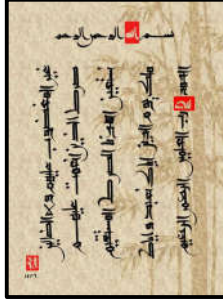 بسم الله الرحمن الرحيم
الحمد لله رب العلمين الرحمن الرحيم
ملك يوم الدين اياك نعبد واياك
نستعين اهدنا الصراط المستقيم
صراط الذين انعمت عليهم
غير المغضوب عليهم ولا الضالين